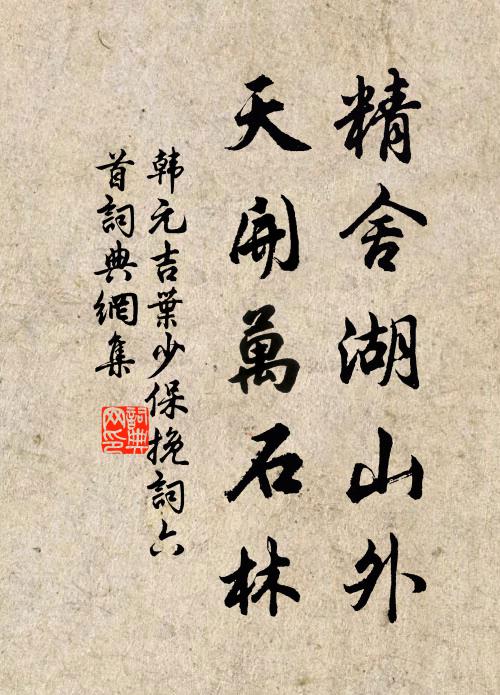 精舍湖山外
天開萬石林
韩元吉葉少保挽詞六
首詞典網集
詞典网印